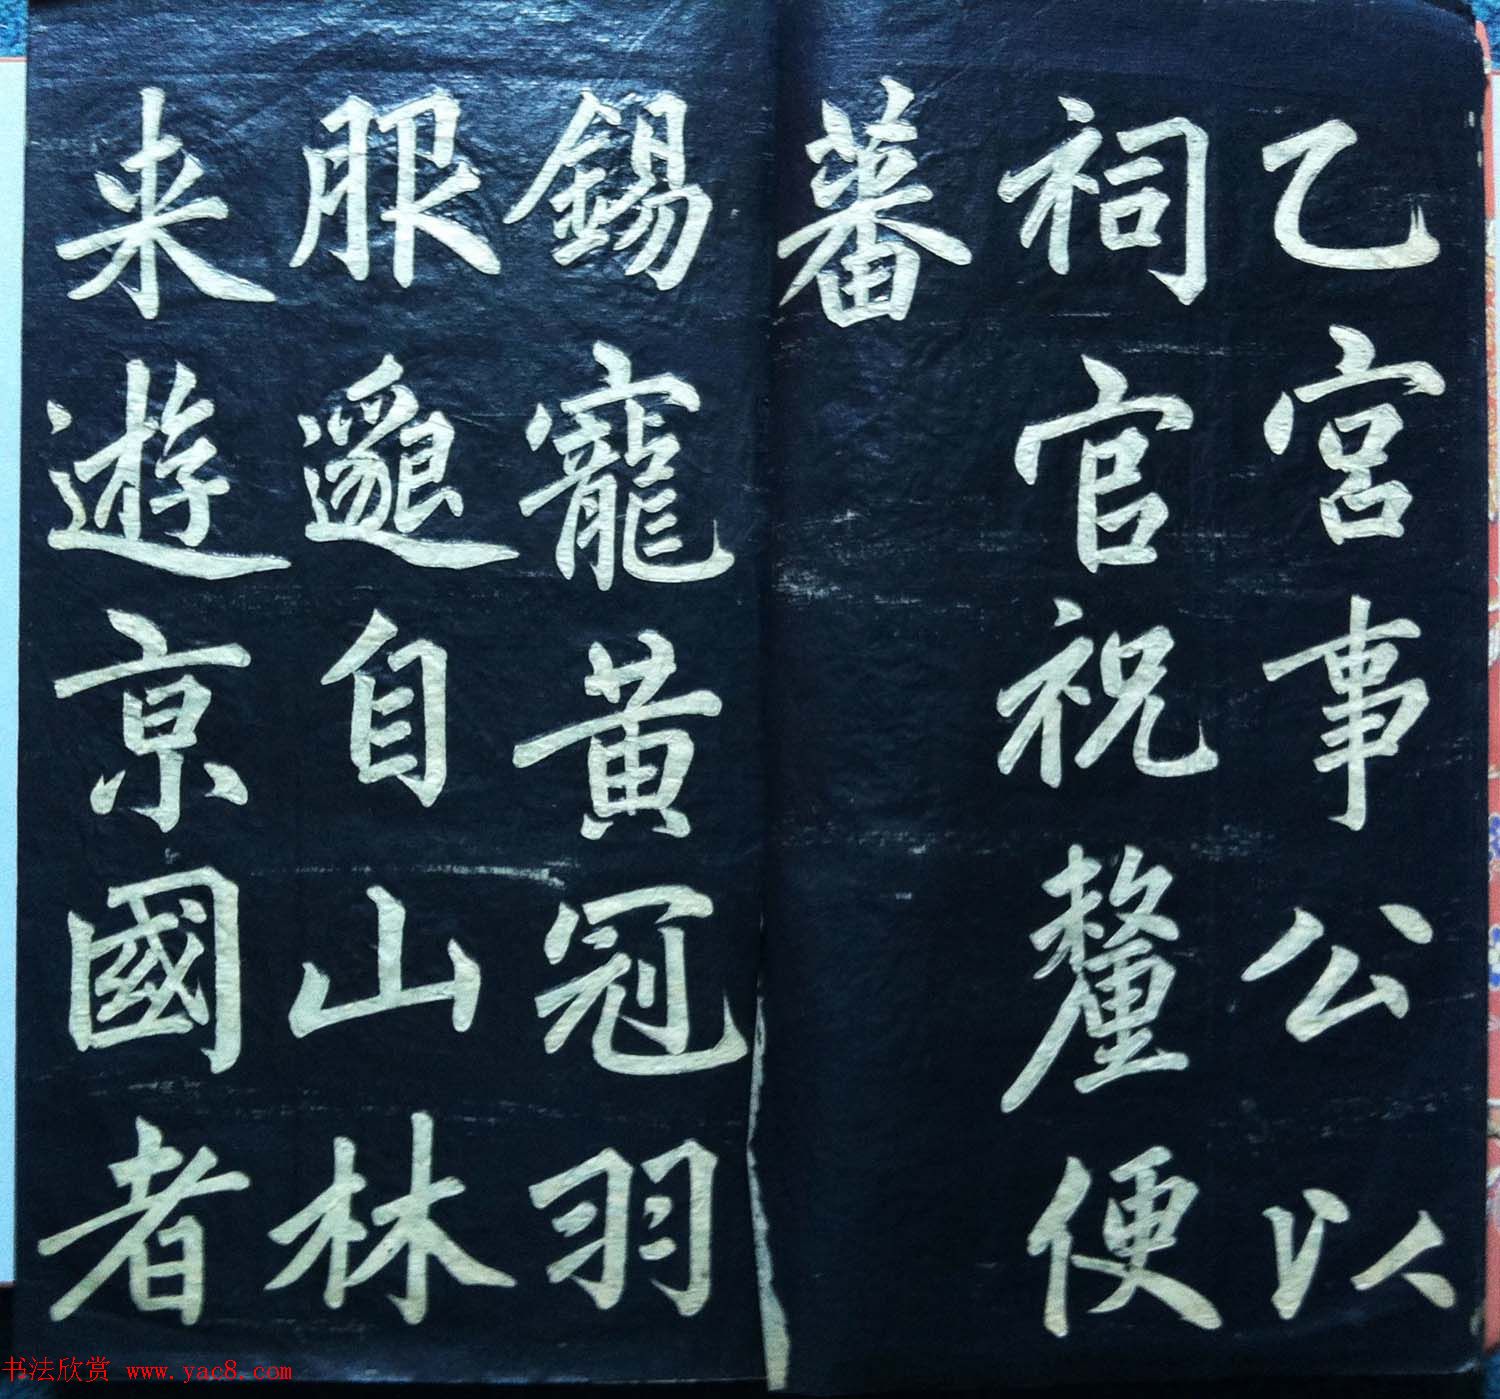 乙宮事公以
祠官祝釐便
蕃
錫寵黃冠羽
服邈自山林
来遊京國者
书法欣赏 www.yac8.com